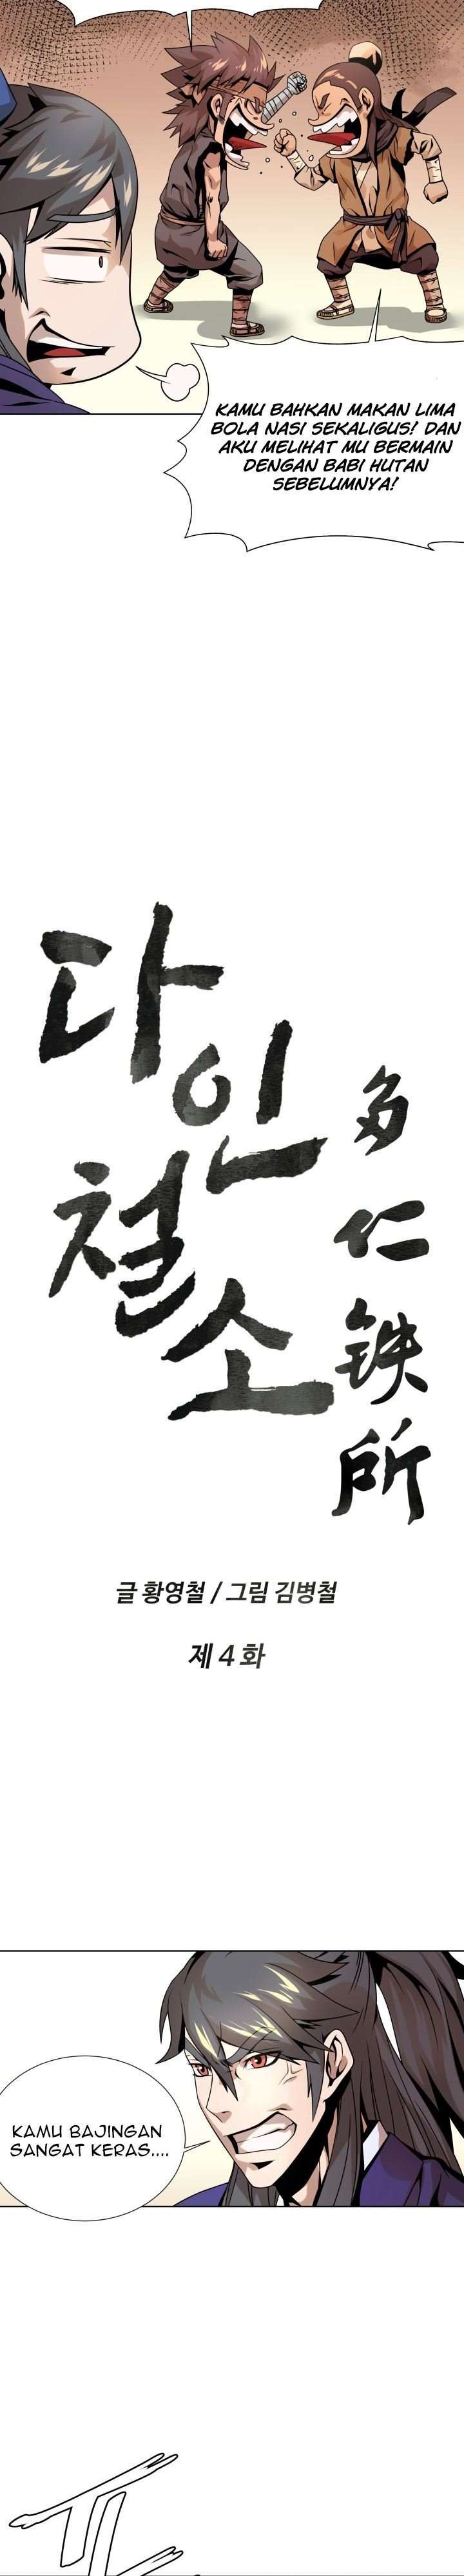 KAMU BAHKAN MAKAN LIMA
BOLA NASI SEKALIGUS! DAN
AKU MELIHAT MU BERMAIN
DENGAN BABI HUTAN
SEBELUMNYA!
다인
철소
多仁铁所
글 황영철 / 그림 김병철
제 4 화
KAMU BAJINGAN
SANGAT KERAS....